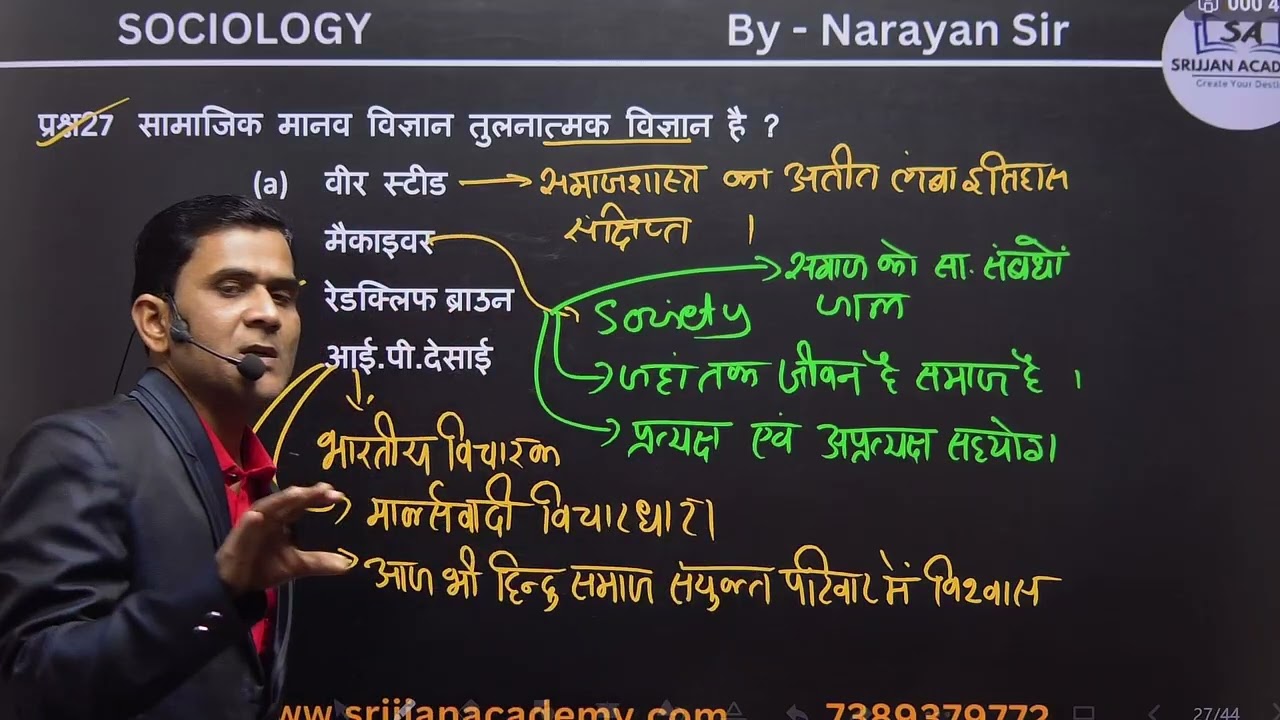 SOCIOLOGY
By - Narayan Sir
000 4
SA
SRIJJAN ACAD
Create Your Desti
प्रश्न27 सामाजिक मानव विज्ञान तुलनात्मक विज्ञान है ?
(a) वीर स्टीड → समाजशास्त्र का अतीत लंबा इतिहास
संक्षिप्त ।
मैकाइवर
समाज को सा. संबंधों
जाल
रेडक्लिफ ब्राउन
Society
आई.पी.देसाई
जहां तक जीवन है समाज है ।
प्रत्यक्ष एवं अप्रत्यक्ष सहयोग।
भारतीय विचारक
→ मार्क्सवादी विचारधारा
→ आज भी हिन्दु समाज संयुक्त परिवार में विश्वास
ww.srijjanacademy.com
7389379772
27/44